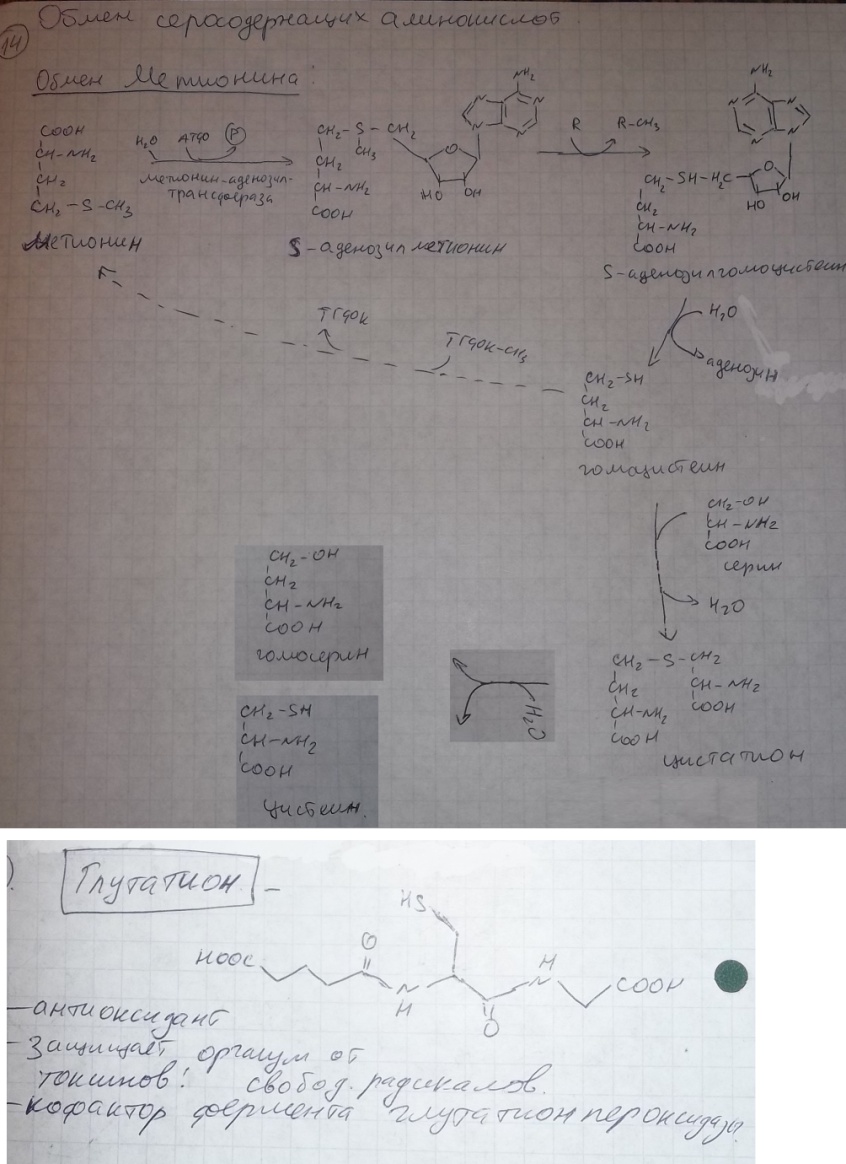 14
Обмен серосодержащих аминокислот.
Обмен Метионина:
COOH
CH-NH2
CH2
CH2-S-CH3
Метионин
H2O АТФ P
метионин-аденозил-
трансфераза
CH2-S-CH2
CH3
CH2
CH-NH2
COOH
NH2
N N
N N
O
HO OH
S-аденозилметионин
R R-CH3
NH2
N N
N N
CH2-SH-H2C
O
CH2
CH-NH2
COOH
HO OH
S-аденозилгомоцистеин
H2O
аденозин
ТГФК
ТГФК-CH3
CH2-SH
CH2
CH-NH2
COOH
гомацистеин
CH2-OH
CH-NH2
COOH
серин
H2O
CH2-OH
CH2
CH-NH2
COOH
гомосерин
H2O
CH2-S-CH2
CH2 CH-NH2
CH-NH2 COOH
COOH
цистатион
CH2-SH
CH-NH2
COOH
Цистеин.
) Глутатион -
HS
HOOC O N H O N H COOH
-антиоксидант
-Защищает органузм от
токсинов! свобод. радикалов.
-кофактор фермента глутатионпероксидазы.